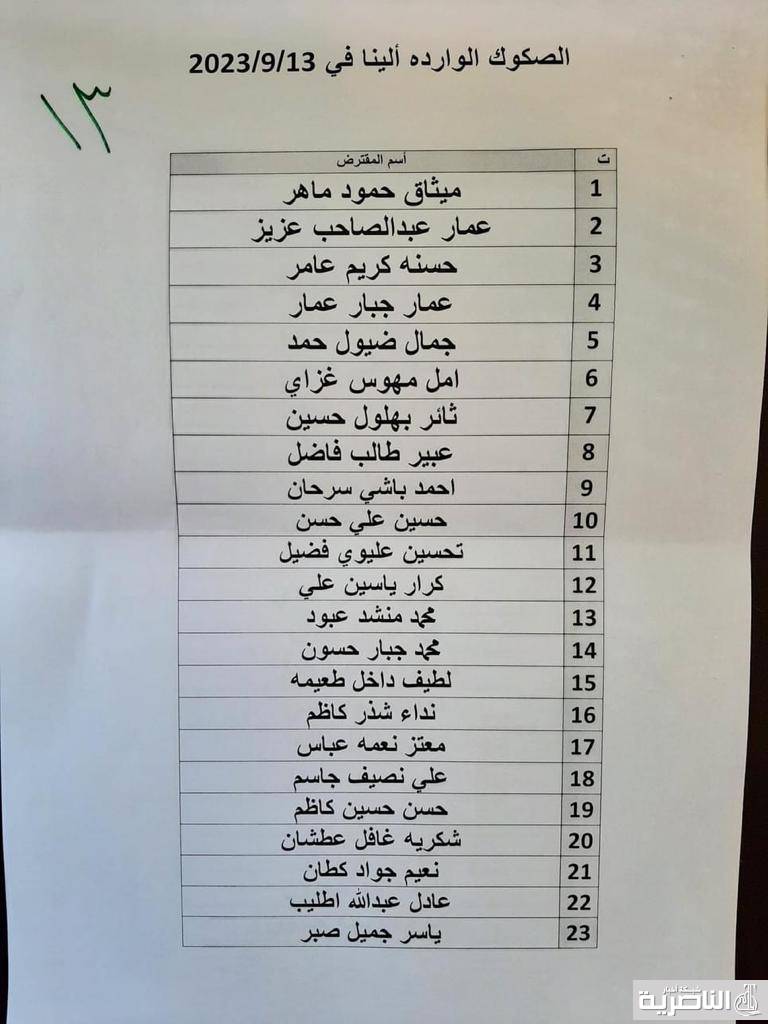 الصكوك الوارده ألينا في 2023/9/13
١٣
ت أسم المقترض
1 ميثاق حمود ماهر
2 عمار عبدالصاحب عزيز
3 حسنه كريم عامر
4 عمار جبار عمار
5 جمال ضيول حمد
6 امل مهوس غزاي
7 ثائر بهلول حسين
8 عبير طالب فاضل
9 احمد باشي سرحان
10 حسين علي حسن
11 تحسين عليوي فضيل
12 كرار ياسين علي
13 محمد منشد عبود
14 محمد جبار حسون
15 لطيف داخل طعيمه
16 نداء شذر كاظم
17 معتز نعمه عباس
18 علي نصيف جاسم
19 حسن حسين كاظم
20 شكريه غافل عطشان
21 نعيم جواد كطان
22 عادل عبدالله اطليب
23 ياسر جميل صبر
شبكة أخبار
الناصرية